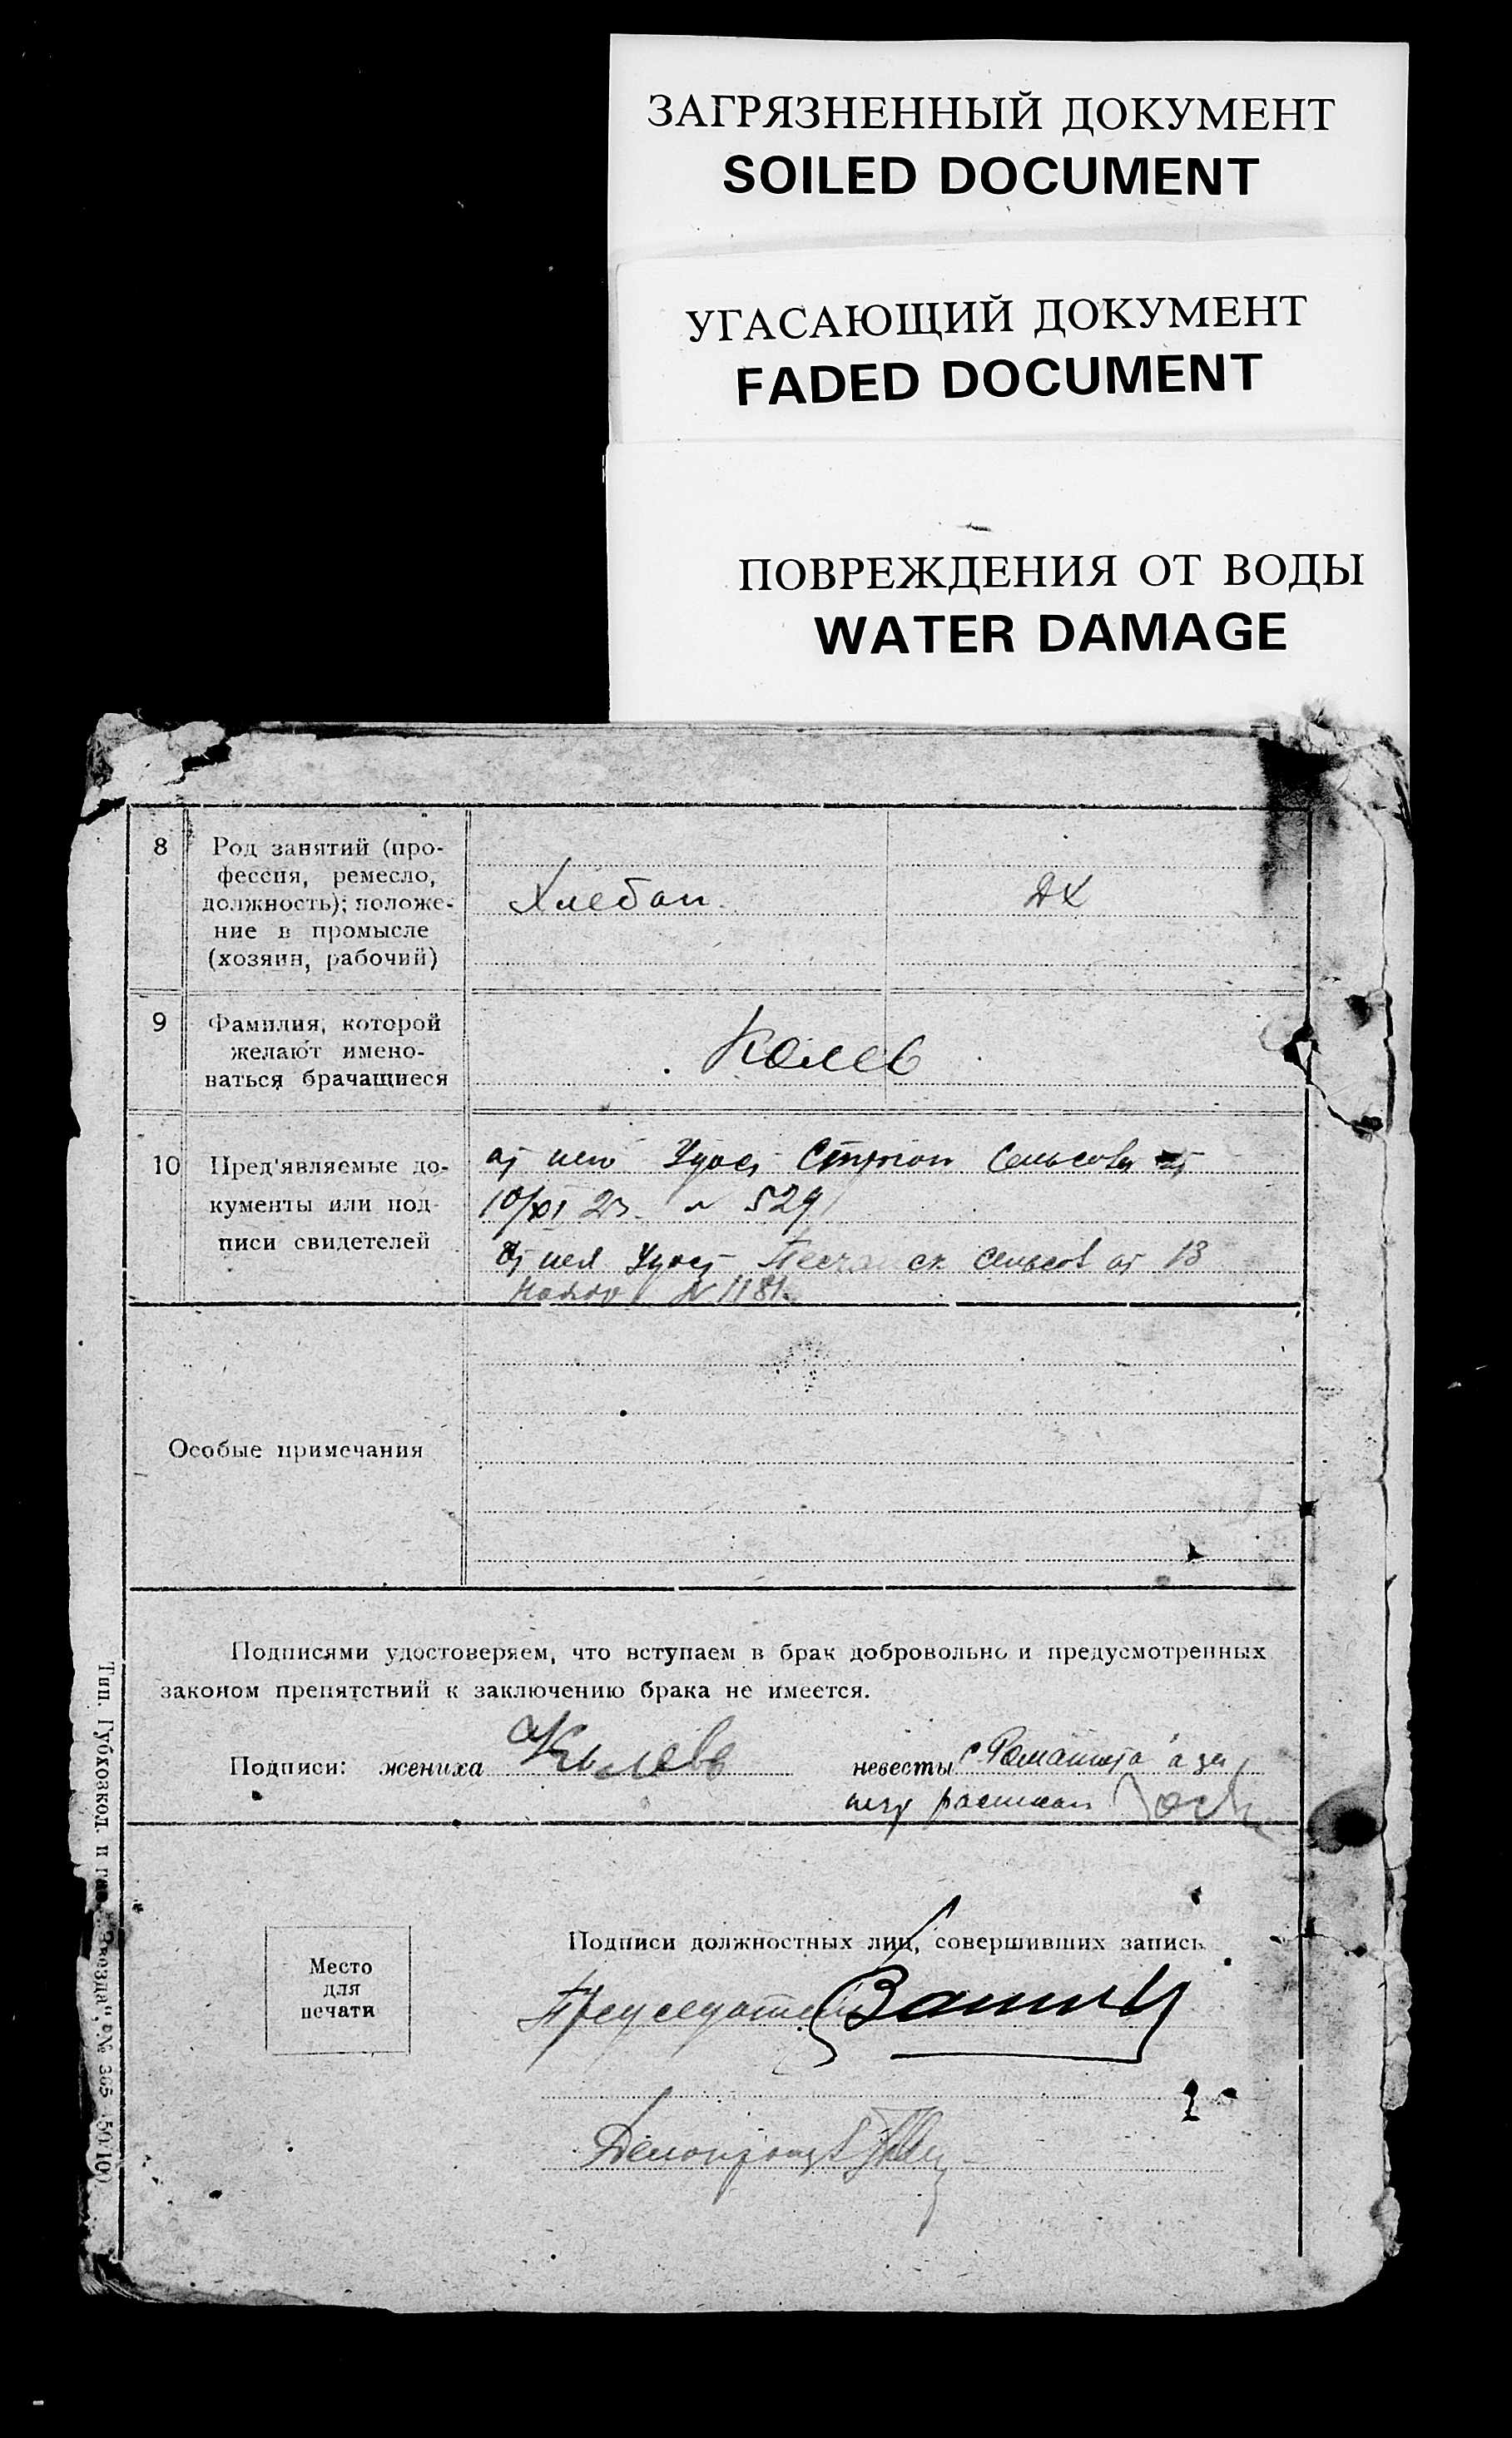 ЗАГРЯЗНЕННЫЙ ДОКУМЕНТ
SOILED DOCUMENT
УГАСАЮЩИЙ ДОКУМЕНТ
FADED DOCUMENT
ПОВРЕЖДЕНИЯ ОТ ВОДЫ
WATER DAMAGE
8 Род занятий (про-
фессия, ремесло,
должность); положе-
ние в промысле
(хозяин, рабочий)
Хлебоп. ДХ
9 Фамилия, которой
желают имено-
ваться брачащиеся
Колев
10 Пред'являемые до-
кументы или под-
писи свидетелей
от Удост Сельсов от
10/XI 23. № 529
от нея Удост Песчанск сельсов от 13
N 1181.
Особые примечания
Подписями удостоверяем, что вступаем в брак добровольно и предусмотренных
законом препятствий к заключению брака не имеется.
Подписи: жениха невесты а за
распис
Подписи должностных лиц, совершивших запись
Место
для
печати
Председатель
Делопроизв
Тип. Губхозкол. и газ. „Звезда“, № 365 50/10)